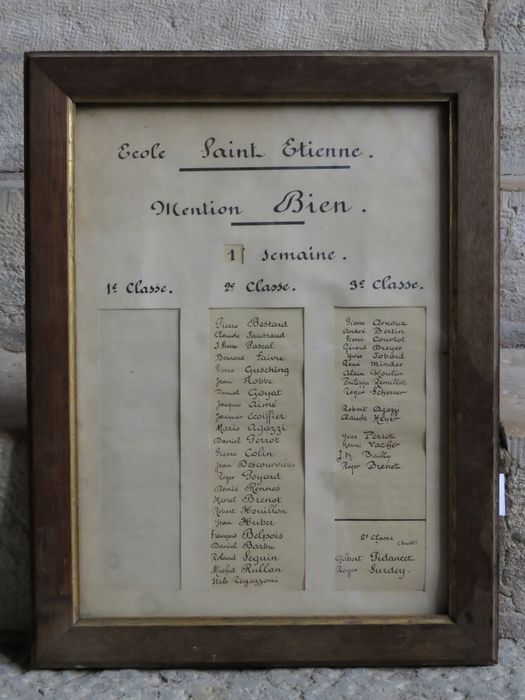 Ecole Saint Etienne.
Mention Bien.
1 Semaine.
1e Classe.
2e Classe.
Pierre Bestard
Claude Jaussaud
J. Pierre Pascal
Bernard Faivre
Pierre Gusching
Jean Robbe
Daniel Goyat
Jacques Aimé
Jacques Ecoiffier
Mario Agazzi
Daniel Perrot
Pierre Colin
Jean Descouvrières
Roger Poyard
Denis Rennes
Marcel Brenot
Robert Houillon
Jean Huber
François Belpois
Daniel Barbu
Roland Seguin
Michel Rullan
Italo Regazzoni
3e Classe.
Pierre Arnoux
André Bertin
Pierre Courtot
Gérard Dreyer
Yves Jobard
René Minder
Alain Moulin
Philippe Remillet
Roger Scherrer
Robert Agazzi
Claude Meyer
Yves Perrot
Henri Vacher
J.M. Bailly
Roger Brenot.
2e Classe
(suite)
Gilbert Pidancet
Roger Surdey.